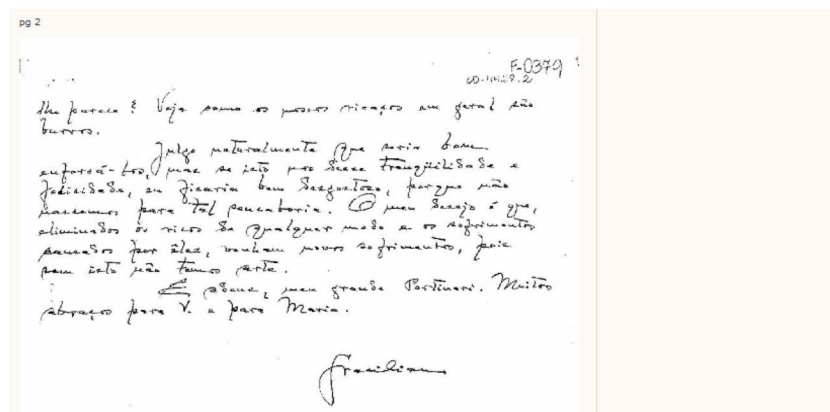 pg 2
F-0379
lhe parece? Veja como os nossos ricaços em geral são
burros.
Julgo naturalmente que seria bom
enforcá-los, mas se isto nos desse tranqüilidade e
felicidade, eu ficaria bem desgostoso, porque não
nascemos para tal pensaboria. O meu desejo é que,
eliminados os ricos de qualquer modo e os sofrimentos
causados por êles, venham novos sofrimentos, pois
sem isto não temos arte.
E adeus, meu grande Portinari. Muitos
abraços para V. e para Maria.
Graciliano